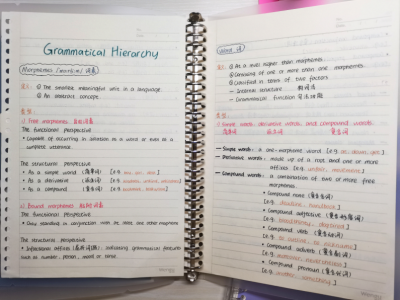 Grammatical Hierarchy
Morphemes [mɔrfim] 词素
定义: ① The smallest meaningful unit in a language
② An abstract concept
类型:
1) Free morphemes 自由词素
The functional perspective
• Capable of occurring in isolation as a word or even as a
complete utterance.
The structural perspective
• As a simple word (简单词) [e.g.
• As a derivative (派生词) [e.g.
• As a compound (复合词) [e.g.
2) Bound morphemes 粘附词素
The functional perspective
• Only stanted in conjunction with at least one other morpheme
The structural perspective
• Inflectional affixes (屈折词缀), indicating grammatical features
such as number, person, word or tense
Word 词
定义: ① As a level higher than morpheme
② Consisting of one or more than one morphemes
③ Classified in terms of two factors
— Internal structure
— Grammatical function 语法功能
类型:
1) Simple words, derivative words and compound words
简单词 派生词 复合词
— Simple words: a one-morpheme word [e.g. as, down, an]
— Derivative words: made up of a root and one or more
affixes [e.g. unfair, movement]
— Compound words: a combination of two or more free
morphemes.
• Compound noun (复合名词)
[e.g. deadline, handback]
• Compound adjective (复合形容词)
[e.g. breathtaking, dogeared]
• Compound verb (复合动词)
[e.g. to outline, to nickname]
• Compound adverb (复合副词)
[e.g. moreover, nevertheless]
• Compound pronoun (复合代词)
[e.g. myself, somebody]